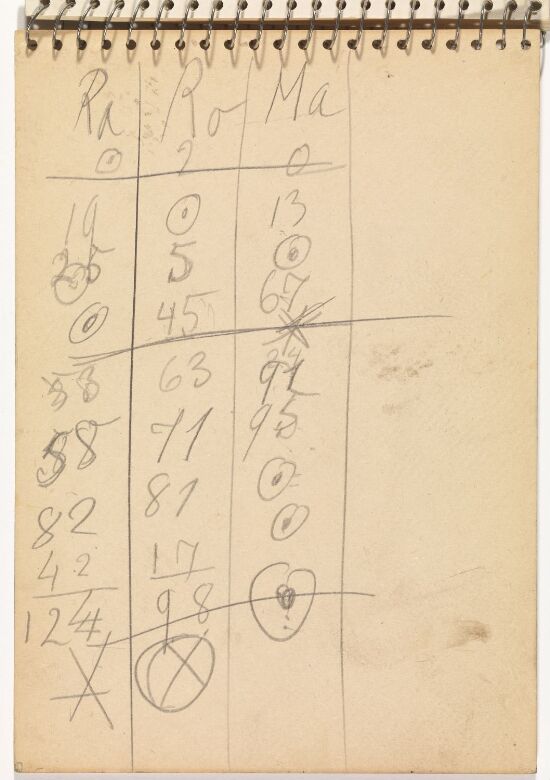 Ra Ro Ma
0 2 0
19 0 13
35 5 0
0 45 67
53 63 92
58 71 95
82 81 0
0
42 17
124 98